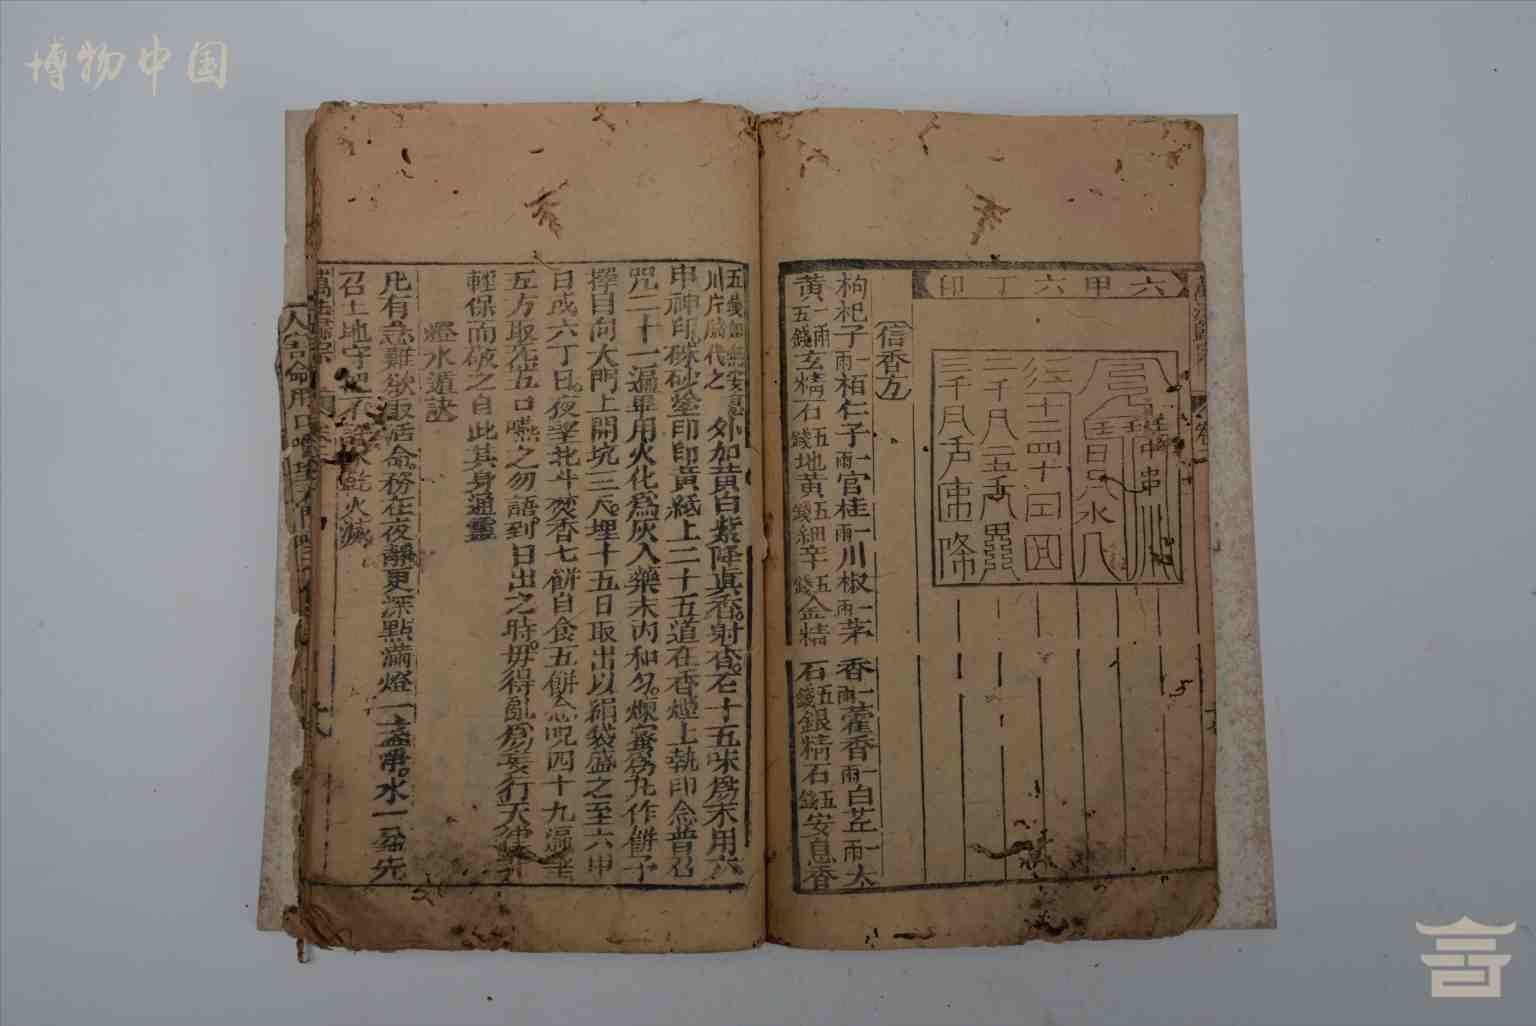 博物中国
六甲六丁印
信香方
枸杞子一兩栢仁子一兩官桂一兩川椒一兩茅香一兩藿香一兩白芷一兩大
黃一兩五錢玄精石五錢地黃五錢細辛五錢金精石五錢銀精石五錢安息香
川片腦代之外加黃白紫降真香射香石十五味為末用六
甲神印硃砂塗印印黃紙上二十五道在香烟上執印念普召
咒二十一遍畢用火化為灰入藥末內和勻煉蜜為丸作餅子
擇目向大門上開坑三尺埋十五日取出以絹袋盛之至六甲
日或六丁日夜望北斗焚香七餅自食五餅念咒四十九遍
五方取炁五口嚥之勿語到日出之時毋得亂為妄行天律
輕保而破之自此其身通靈
燈水遁訣
凡有急難欲取活命務在夜靜更深點滿燈一盞用水一碗先
召土地守把
萬法歸宗